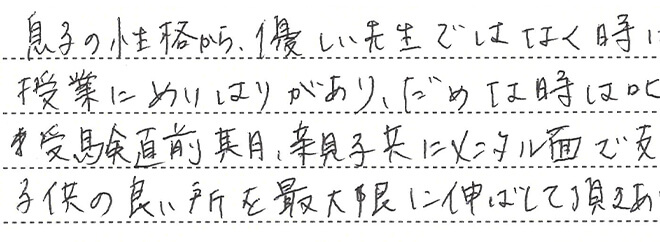 息子の性格から、優しい先生ではなく時に
授業にめりはりがあり、だめな時は叱
受験直前期、親子共にメンタル面で支
子供の良い所を最大限に伸ばして頂きあ